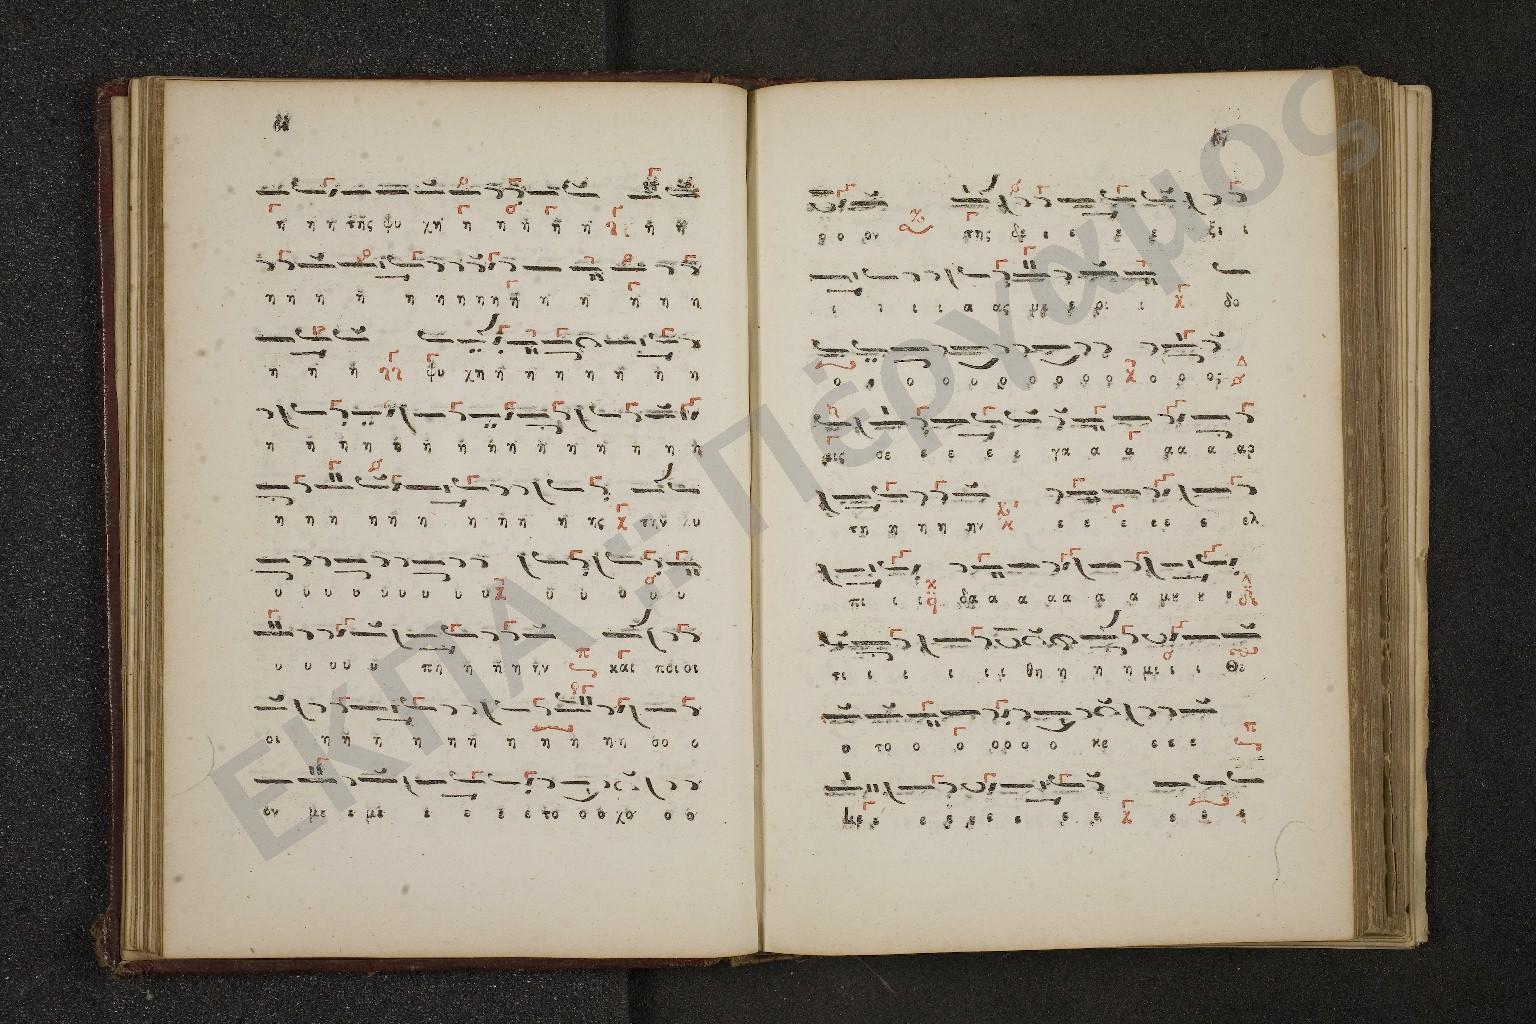 η η η της ψυ χη η η η η η η η
η η η η η η η η η η η η η η
η η η ψυ χη η η η η η η η η
η η η η η η η η η η η η η η
η η η η η η η η η η ης την λυ
υ υ υ υ υ υ υ υ υ υ υ υ υ υ
υ υ υ υ υ πη η η η ην και ποι οι
οι η η η η η η η η η η η σο ο
ον με ε με ε ε ε ε το ο ο χο ο ο
ο ο ον της δε ε ε ε ε ξι ι
ι ι ι ι α ας με ε ρι ι δο
ο ο ο ο ο ο ο ο ο ο ο ο ος
ρις σε ε ε ε ε γα α α α α α αρ
τη η η η ην ε ε ε ε ε ε ελ
πι ι ι δα α α α α α α μου ου ου
τι ι ι ι ι ι θη η η η μι ι ι Θε
ο το ο ο ο ο ο ο κε ε ε ε
ε ε ε ε ε ε ε ε ε ε ε
ΕΚΠΑ :: Πέργαμος